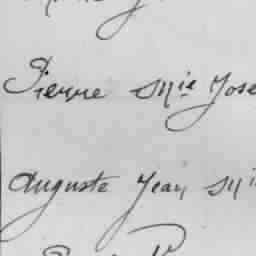 Pierre Mie Jose
Auguste Jean Mi